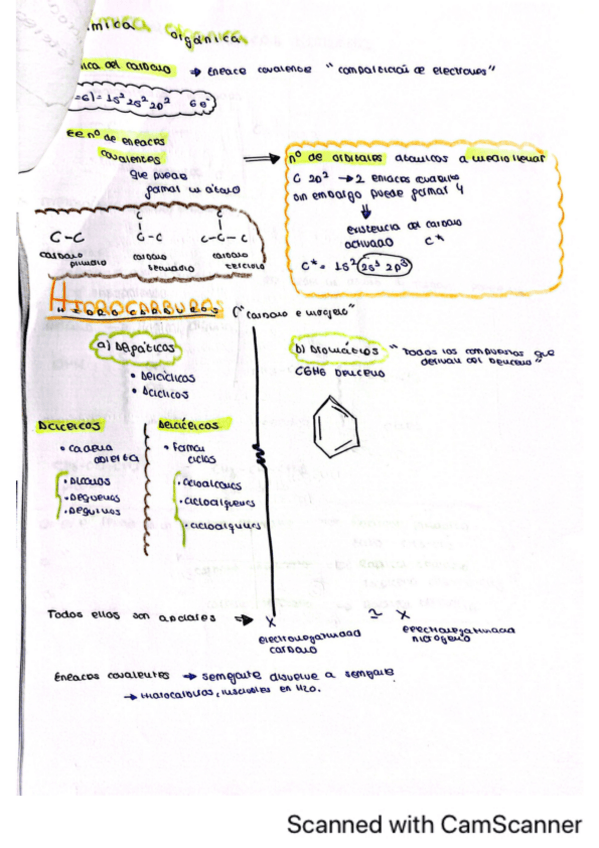 mica orgánica
ica del carbono → Enlace covalente "compartición de electrones"
=6)= 1s² 2s² 2p² 6e⁻
nº de enlaces
covalentes
que puede
formar un átomo
⇒ nº de orbitales atómicos a medio llenar
C 2p² → 2 enlaces
sin embargo puede formar 4
⇓
existencia del carbono
activado C*
C* = 1s² 2s¹ 2p³
C-C
C
C-C
C
C-C-C
carbono primario
carbono secundario
carbono terciario
HIDROCARBUROS ("carbono e hidrógeno"
a) Alifáticos
• Alicíclicos
• Acíclicos
b) Aromáticos "Todos los compuestos que
derivan del benceno"
C6H6 benceno
Acíclicos
• cadena
abierta
• Alcanos
• Alquenos
• Alquinos
Alicíclicos
• Forman
ciclos
• cicloalcanos
• cicloalquenos
• cicloalquinos
Todos ellos son apolares ⇒ X ≃ X
electronegatividad
carbono
electronegatividad
hidrógeno
Enlaces covalentes → semejante disuelve a semejante
→ Hidrocarburos, insolubles en H2O.
Scanned with CamScanner